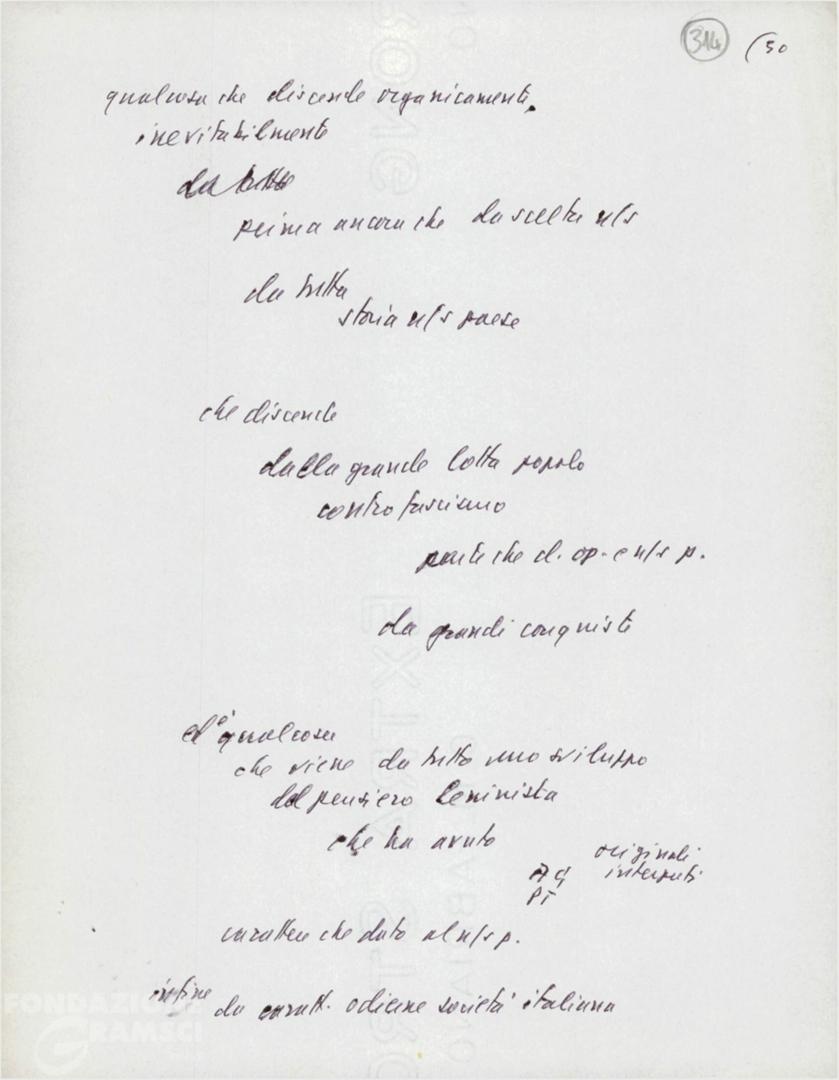 314 (50
qualcosa che discende organicamente,
inevitabilmente
da tutto
prima ancora che da scelte n/s
da tutta
storia n/s paese
che discende
dalla grande lotta popolo
contro fascismo
parte che cl. op. e n/s p.
da grandi conquiste
ed è qualcosa
che viene da tutto uno sviluppo
del pensiero leninista
che ha avuto
originali
AG interpreti
PT
carattere che dato al n/s p.
infine da caratt. odierne società italiana
FONDAZIONE
GRAMSCI
EXTRA